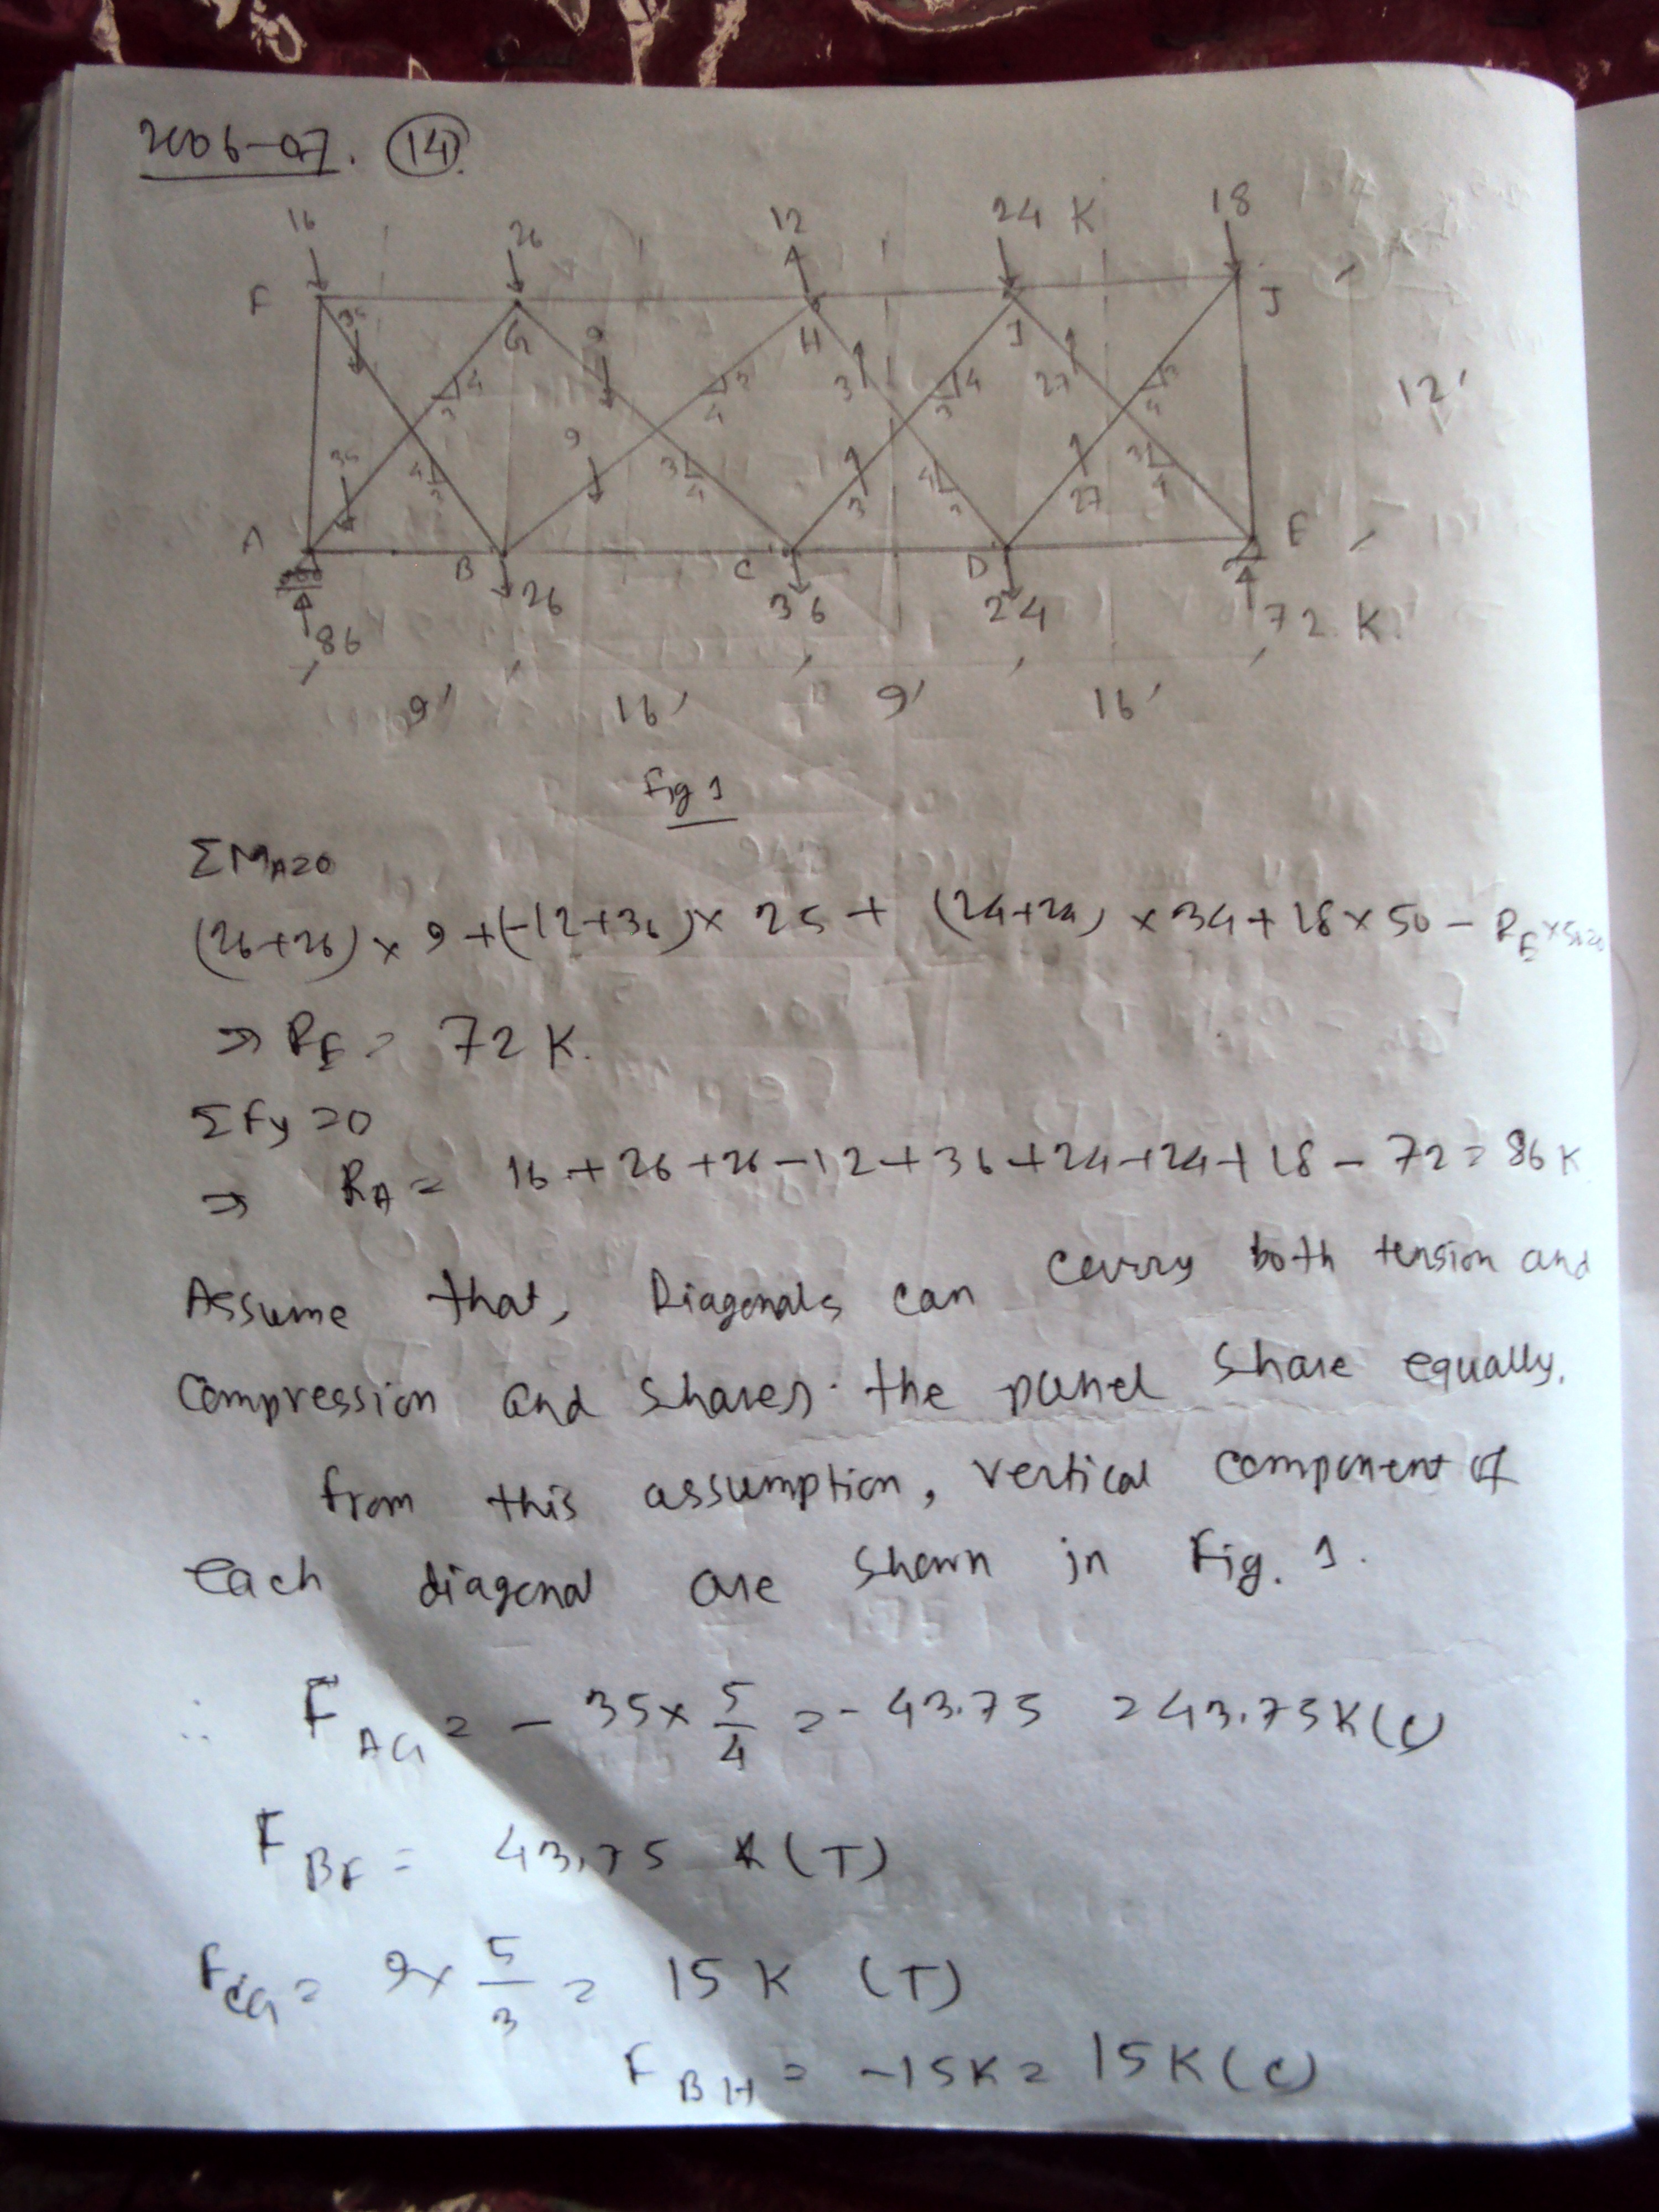 2006-07. (14)
16 26 12 24 K 18
F G H I J
35 9 3 27
3 4 4 3 3 4 3 4
12'
35 9 3 27
4 3 3 4 4 3 3 4
A B C D E
26 36 24 72 K.
86
9' 16' 9' 16'
Fig 1
ΣMA=0
(26+26) × 9 + (-12+36) × 25 + (24+24) × 34 + 18 × 50 - RE × 50=0
⇒ RE = 72 K.
ΣFy=0
⇒ RA = 16 + 26 + 26 - 12 + 36 + 24 + 24 + 18 - 72 = 86 K
Assume that, Diagonals can carry both tension and
compression and shares the panel share equally.
from this assumption, vertical component of
each diagonal are shown in Fig. 1.
∴ FAG = - 35 × 5/4 = - 43.75 = 43.75 K (C)
FBF = 43.75 K (T)
FCG = 9 × 5/3 = 15 K (T)
FBH = -15K = 15K (C)